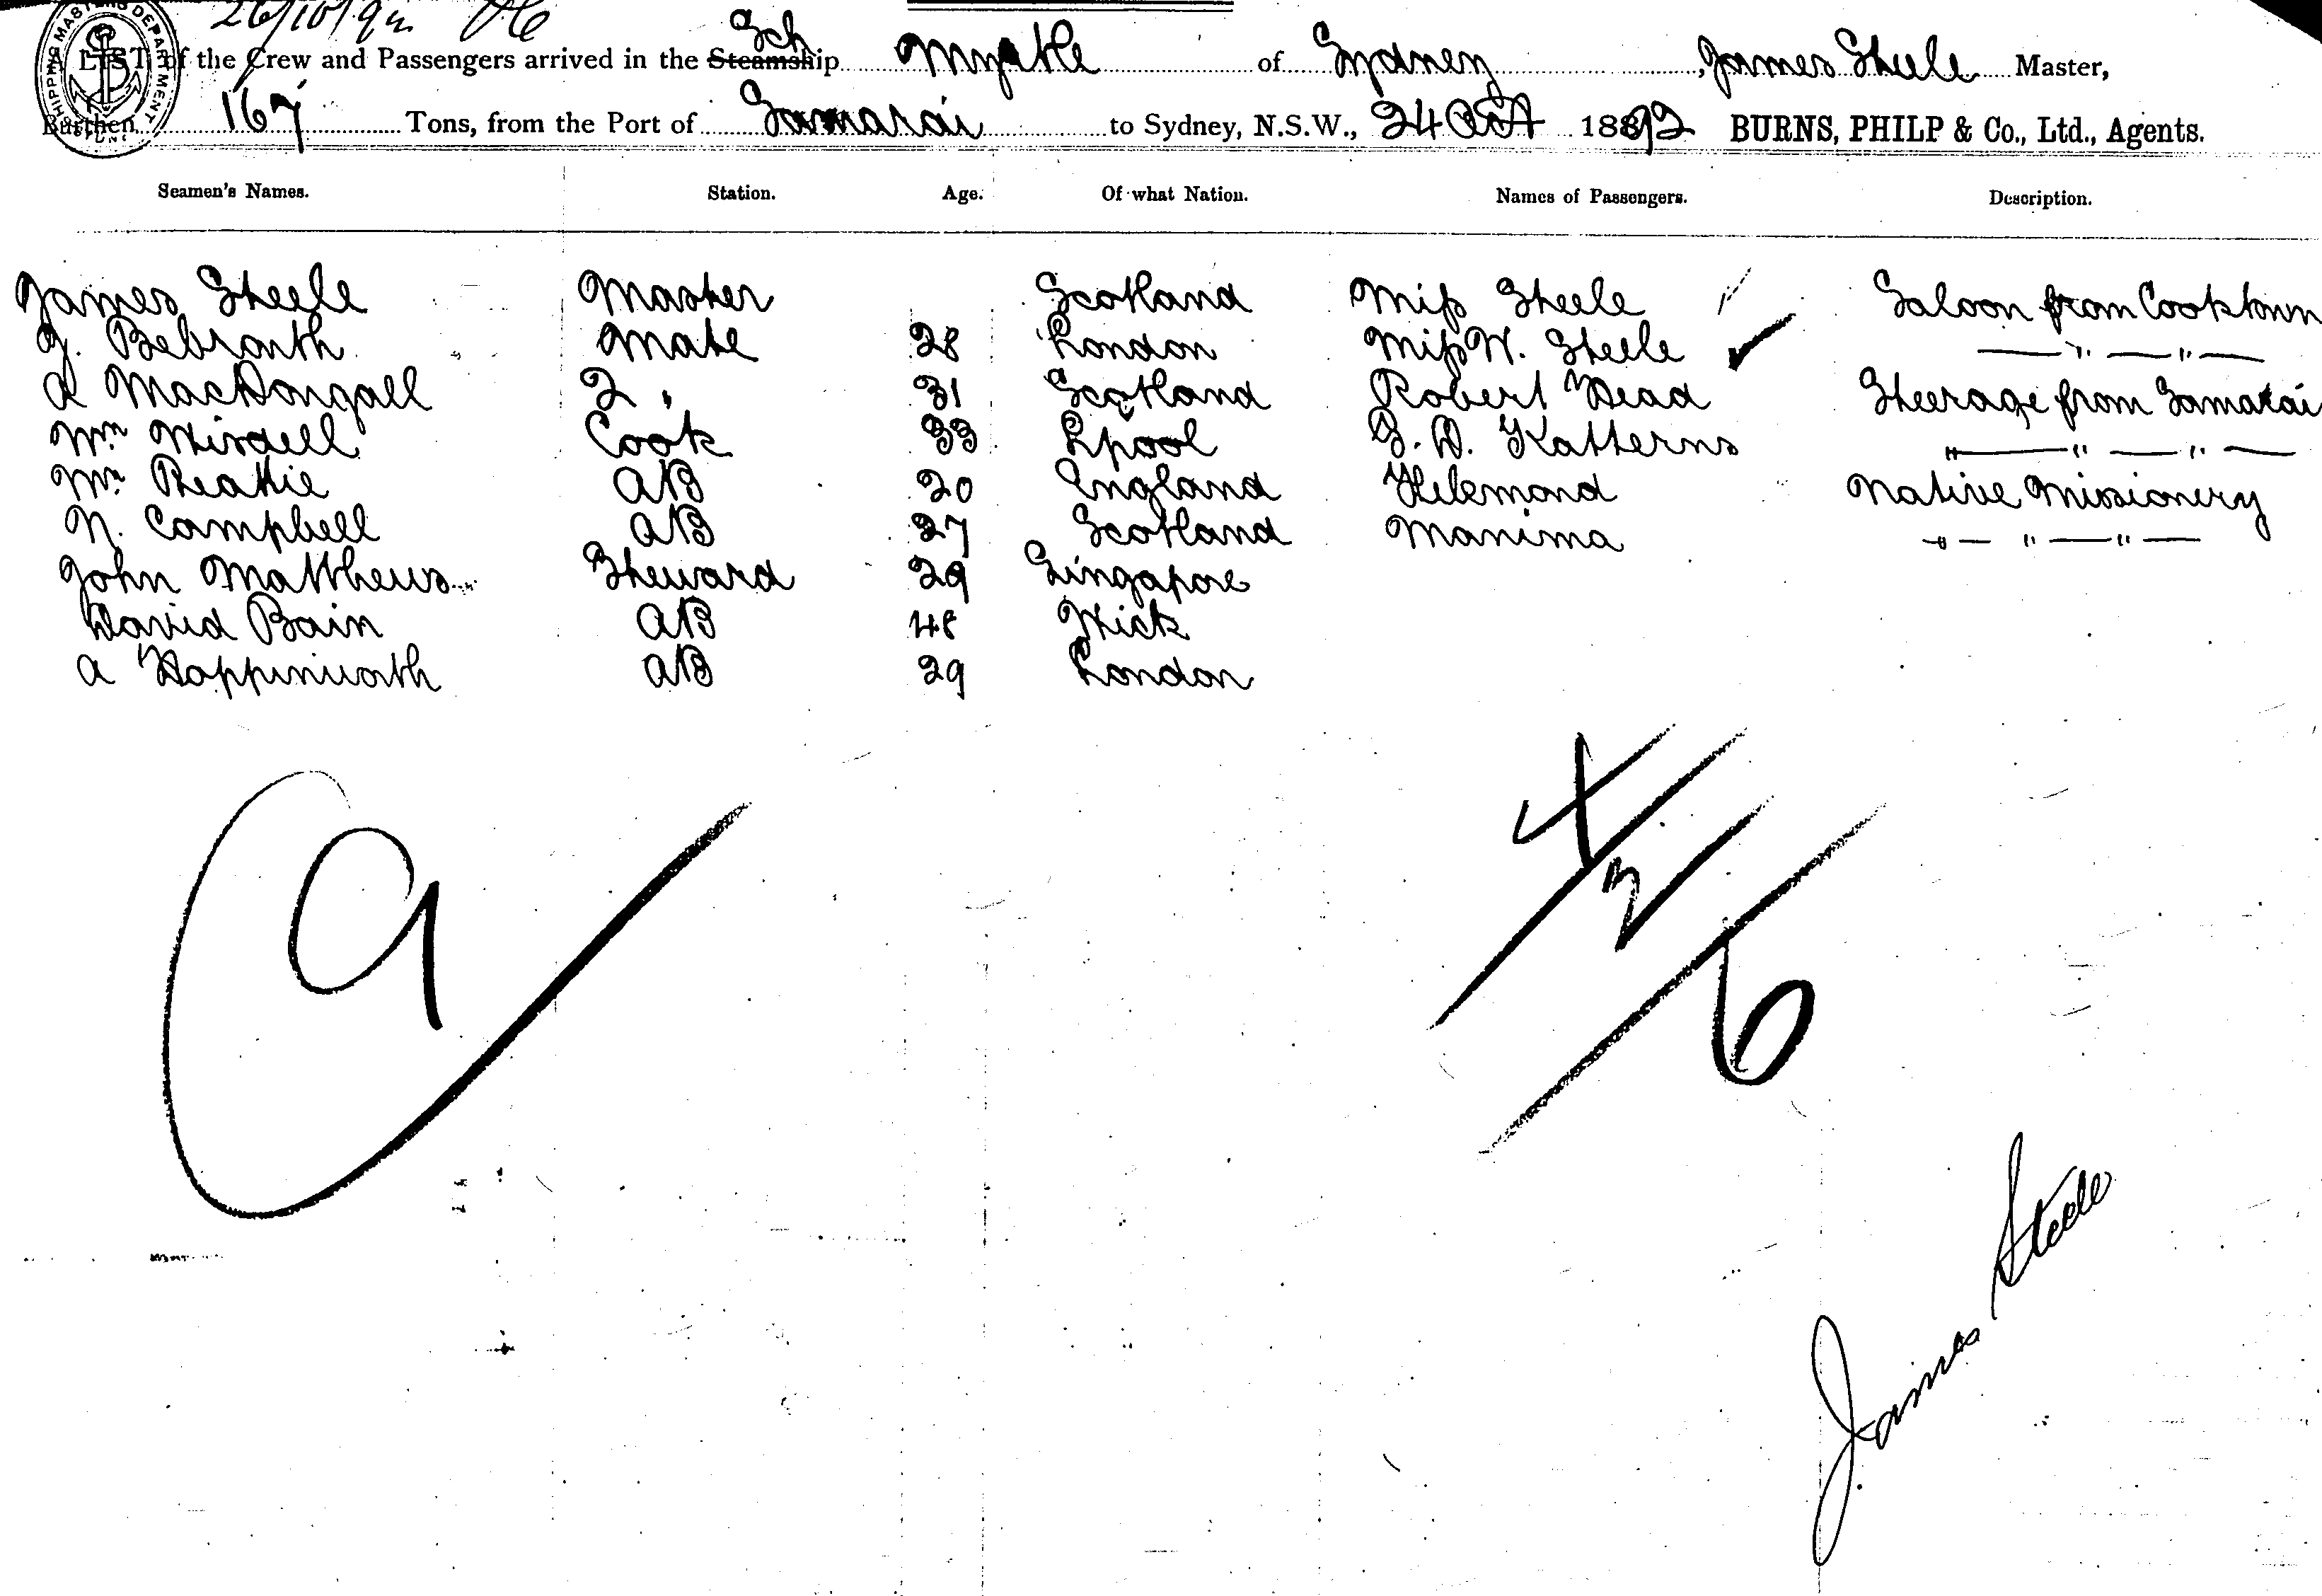 26/10/92
SHIPPING MASTERS DEPARTMENT
Sch
A LIST of the Crew and Passengers arrived in the Steamship Myrtle of Sydney, James Steele Master,
Burthen 167 Tons, from the Port of Samarai to Sydney, N.S.W., 24 Oct 1892 BURNS, PHILP & Co., Ltd., Agents.
Seamen's Names. Station. Age. Of what Nation. Names of Passengers. Description.
James Steele Master Scotland Miss Steele Saloon from Cooktown
Mate 28 London Miss W. Steele " "
A MacDougall 2 " 31 Scotland Robert Head Steerage from Samarai
Wm Cook 33 Lpool G. D. Katterns " " "
Wm Beattie AB 20 England Native Missionery
N. Campbell AB 27 Scotland Manima " " "
John Matthews Steward 29 Singapore
David Bain AB 48 Wick
A AB 29 London
9
4
2
6
James Steele